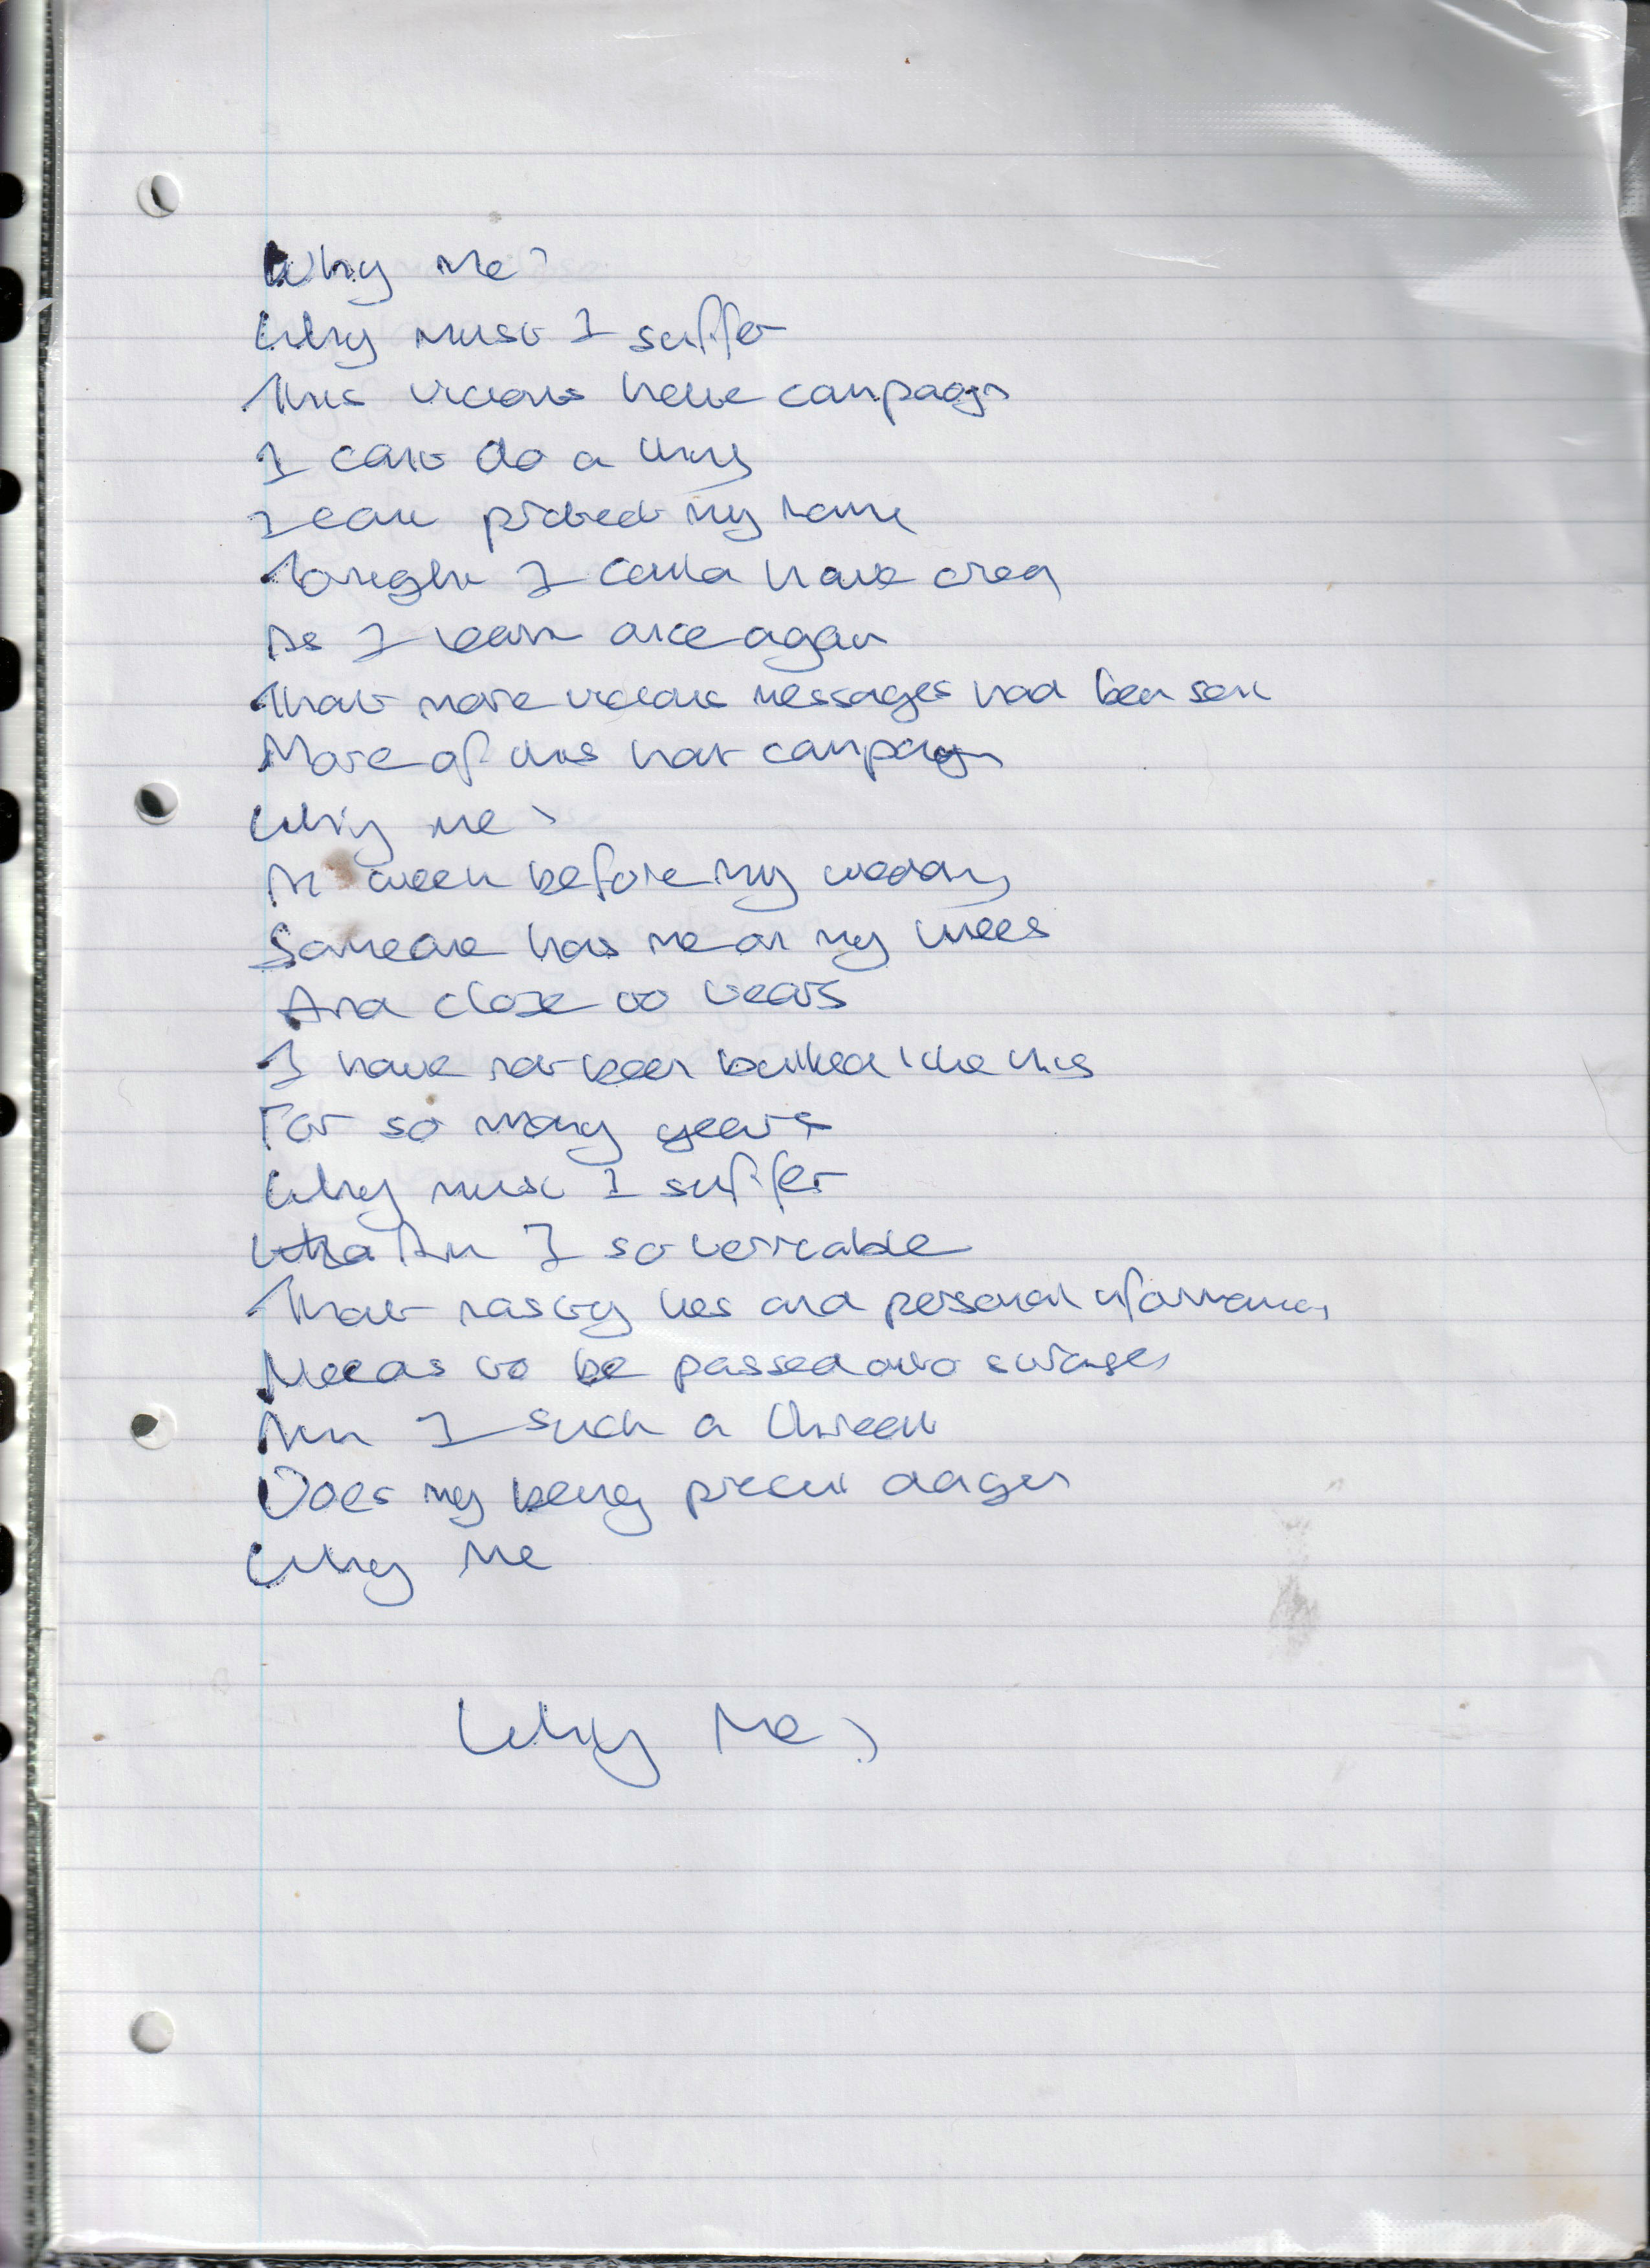 Why Me?
Why must I suffer
This vicious hate campaign
I cant do a thing
I cant protect my name
Tonight I could have cried
As I learn once again
That more vicious messages had been sent
More of this hat campaign
Why me?
A week before my wedding
Someone has me on my knees
And close to tears
I have not been bullied like this
For so many years
Why must I suffer
Am I so
That nasty lies and personal information
Needs to be passed onto strangers
Am I such a threat
Does my being present danger
Why Me
Why Me?